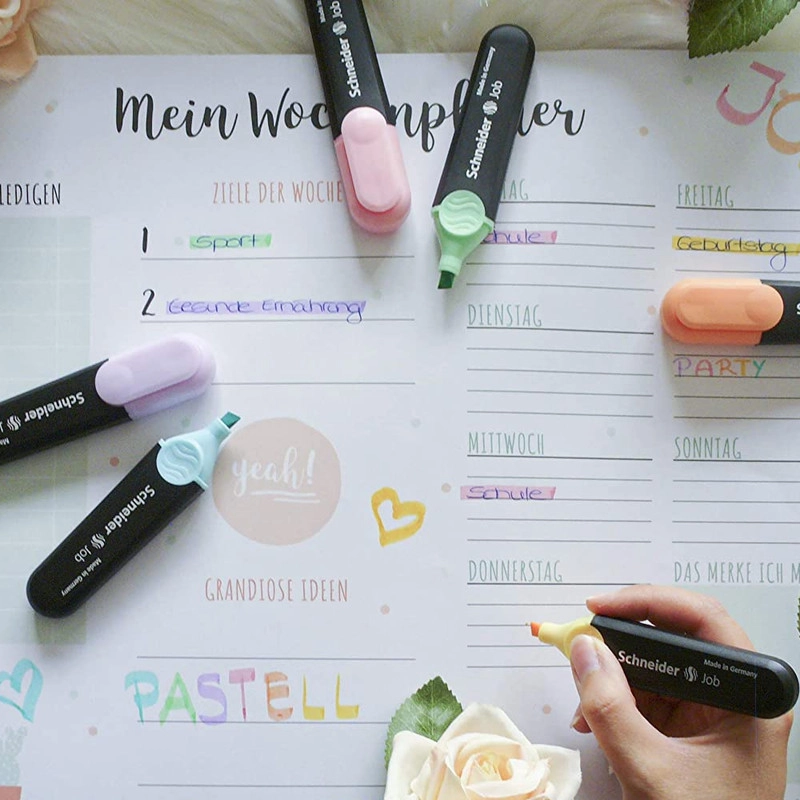 Mein Wochenplaner
LEDIGEN
ZIELE DER WOCHE
1 Sport
2 Gesunde Ernährung
yeah!
GRANDIOSE IDEEN
PASTELL
TAG
Schule
DIENSTAG
MITTWOCH
Schule
DONNERSTAG
FREITAG
Geburtstag
PARTY
SONNTAG
DAS MERKE ICH M
Schneider Job
Made in Germany
Schneider Job
Made in Germany
Schneider
Schneider Job
Made in Germany
Schneider Job
Made in Germany